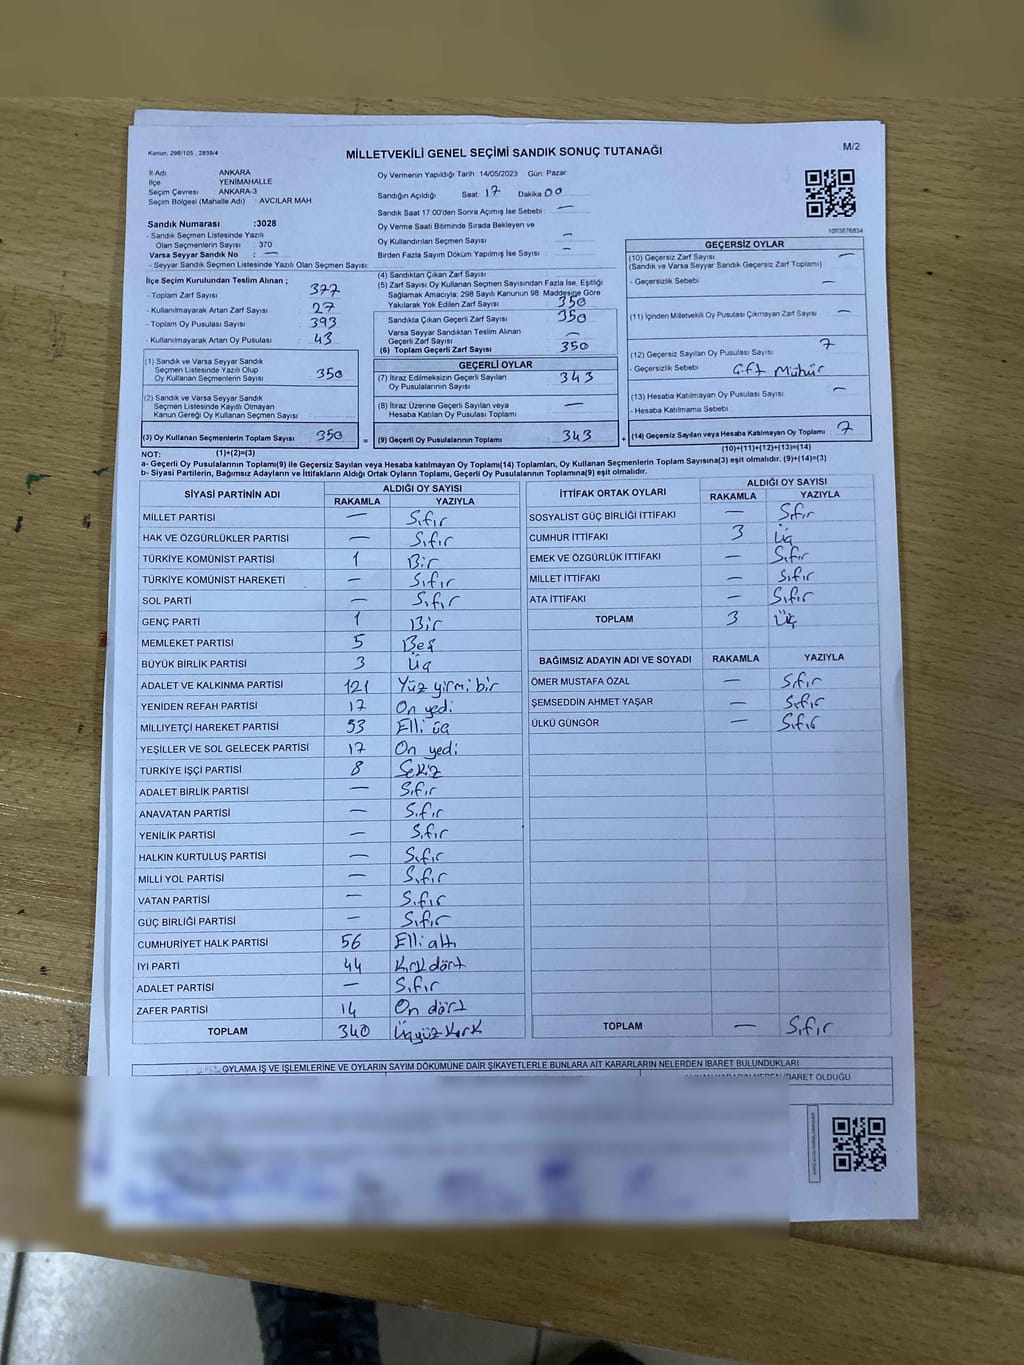 Kanun, 298/105 , 2839/4
MİLLETVEKİLİ GENEL SEÇİMİ SANDIK SONUÇ TUTANAĞI
M/2
İl Adı ANKARA
İlçe YENİMAHALLE
Seçim Çevresi ANKARA-3
Seçim Bölgesi (Mahalle Adı) : AVCILAR MAH
Oy Vermenin Yapıldığı Tarih : 14/05/2023 Gün: Pazar
Sandığın Açıldığı Saat: 17 Dakika 00
Sandık Saat 17:00'den Sonra Açılmış İse Sebebi : —
Oy Verme Saati Bitiminde Sırada Bekleyen ve
Oy Kullandırılan Seçmen Sayısı : —
Birden Fazla Sayım Döküm Yapılmış İse Sayısı : —
Sandık Numarası :3028
- Sandık Seçmen Listesinde Yazılı
Olan Seçmenlerin Sayısı : 370
Varsa Seyyar Sandık No : —
- Seyyar Sandık Seçmen Listesinde Yazılı Olan Seçmen Sayısı:
İlçe Seçim Kurulundan Teslim Alınan ;
- Toplam Zarf Sayısı : 377
- Kullanılmayarak Artan Zarf Sayısı : 27
- Toplam Oy Pusulası Sayısı : 393
- Kullanılmayarak Artan Oy Pusulası : 43
(1) Sandık ve Varsa Seyyar Sandık
Seçmen Listesinde Yazılı Olup
Oy Kullanan Seçmenlerin Sayısı : 350
(2) Sandık ve Varsa Seyyar Sandık
Seçmen Listesinde Kayıtlı Olmayan
Kanun Gereği Oy Kullanan Seçmen Sayısı :
(3) Oy Kullanan Seçmenlerin Toplam Sayısı : 350 =
(4) Sandıktan Çıkan Zarf Sayısı :
(5) Zarf Sayısı Oy Kullanan Seçmen Sayısından Fazla İse, Eşitliği
Sağlamak Amacıyla, 298 Sayılı Kanunun 98. Maddesine Göre
Yakılarak Yok Edilen Zarf Sayısı : 350
Sandıkta Çıkan Geçerli Zarf Sayısı : 350
Varsa Seyyar Sandıktan Teslim Alınan
Geçerli Zarf Sayısı : —
(6) Toplam Geçerli Zarf Sayısı : 350
GEÇERLİ OYLAR
(7) İtiraz Edilmeksizin Geçerli Sayılan
Oy Pusulalarının Sayısı : 343
(8) İtiraz Üzerine Geçerli Sayılan veya
Hesaba Katılan Oy Pusulası Toplamı : —
(9) Geçerli Oy Pusulalarının Toplamı : 343 +
1083676834
GEÇERSİZ OYLAR
(10) Geçersiz Zarf Sayısı : —
(Sandık ve Varsa Seyyar Sandık Geçersiz Zarf Toplamı)
- Geçersizlik Sebebi : —
(11) İçinden Milletvekili Oy Pusulası Çıkmayan Zarf Sayısı : —
(12) Geçersiz Sayılan Oy Pusulası Sayısı : 7
- Geçersizlik Sebebi : Çift Mühür
(13) Hesaba Katılmayan Oy Pusulası Sayısı : —
- Hesaba Katılmama Sebebi :
(14) Geçersiz Sayılan veya Hesaba Katılmayan Oy Toplamı : 7
NOT: (1)+(2)=(3) (10)+(11)+(12)+(13)=(14)
a- Geçerli Oy Pusulalarının Toplamı(9) ile Geçersiz Sayılan veya Hesaba katılmayan Oy Toplamı(14) Toplamları, Oy Kullanan Seçmenlerin Toplam Sayısına(3) eşit olmalıdır. (9)+(14)=(3)
b- Siyasi Partilerin, Bağımsız Adayların ve İttifakların Aldığı Ortak Oyların Toplamı, Geçerli Oy Pusulalarının Toplamına(9) eşit olmalıdır.
SİYASİ PARTİNİN ADI ALDIĞI OY SAYISI
RAKAMLA YAZIYLA
MİLLET PARTİSİ — Sıfır
HAK VE ÖZGÜRLÜKLER PARTİSİ — Sıfır
TÜRKİYE KOMÜNİST PARTİSİ 1 Bir
TÜRKİYE KOMÜNİST HAREKETİ — Sıfır
SOL PARTİ — Sıfır
GENÇ PARTİ 1 Bir
MEMLEKET PARTİSİ 5 Beş
BÜYÜK BİRLİK PARTİSİ 3 Üç
ADALET VE KALKINMA PARTİSİ 121 Yüz yirmi bir
YENİDEN REFAH PARTİSİ 17 On yedi
MİLLİYETÇİ HAREKET PARTİSİ 53 Elli üç
YEŞİLLER VE SOL GELECEK PARTİSİ 17 On yedi
TÜRKİYE İŞÇİ PARTİSİ 8 Sekiz
ADALET BİRLİK PARTİSİ — Sıfır
ANAVATAN PARTİSİ — Sıfır
YENİLİK PARTİSİ — Sıfır
HALKIN KURTULUŞ PARTİSİ — Sıfır
MİLLİ YOL PARTİSİ — Sıfır
VATAN PARTİSİ — Sıfır
GÜÇ BİRLİĞİ PARTİSİ — Sıfır
CUMHURİYET HALK PARTİSİ 56 Elli altı
İYİ PARTİ 44 Kırk dört
ADALET PARTİSİ — Sıfır
ZAFER PARTİSİ 14 On dört
TOPLAM 340 Üçyüz kırk
İTTİFAK ORTAK OYLARI ALDIĞI OY SAYISI
RAKAMLA YAZIYLA
SOSYALİST GÜÇ BİRLİĞİ İTTİFAKI — Sıfır
CUMHUR İTTİFAKI 3 Üç
EMEK VE ÖZGÜRLÜK İTTİFAKI — Sıfır
MİLLET İTTİFAKI — Sıfır
ATA İTTİFAKI — Sıfır
TOPLAM 3 Üç
BAĞIMSIZ ADAYIN ADI VE SOYADI RAKAMLA YAZIYLA
ÖMER MUSTAFA ÖZAL — Sıfır
ŞEMSEDDİN AHMET YAŞAR — Sıfır
ÜLKÜ GÜNGÖR — Sıfır
TOPLAM — Sıfır
OYLAMA İŞ VE İŞLEMLERİNE VE OYLARIN SAYIM DÖKÜMÜNE DAİR ŞİKAYETLERLE BUNLARA AİT KARARLARIN NELERDEN İBARET BULUNDUKLARI
İBARET OLDUĞU